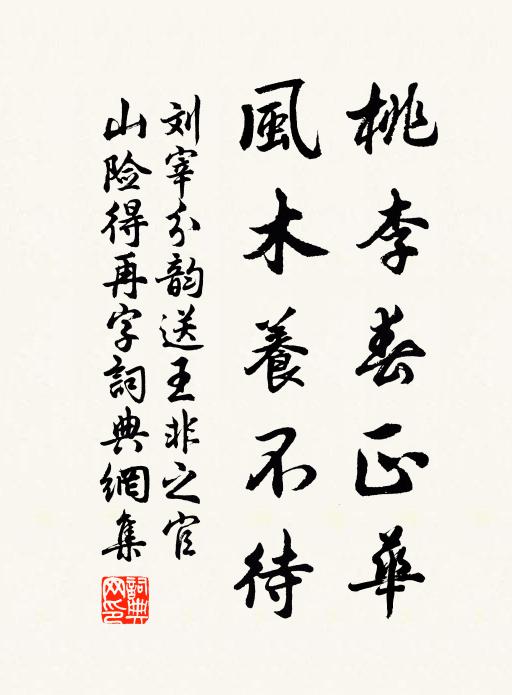 桃李春正華
風木養不待
刘宰分韵送王非之官
山险得再字詞典網集
詞典
网印